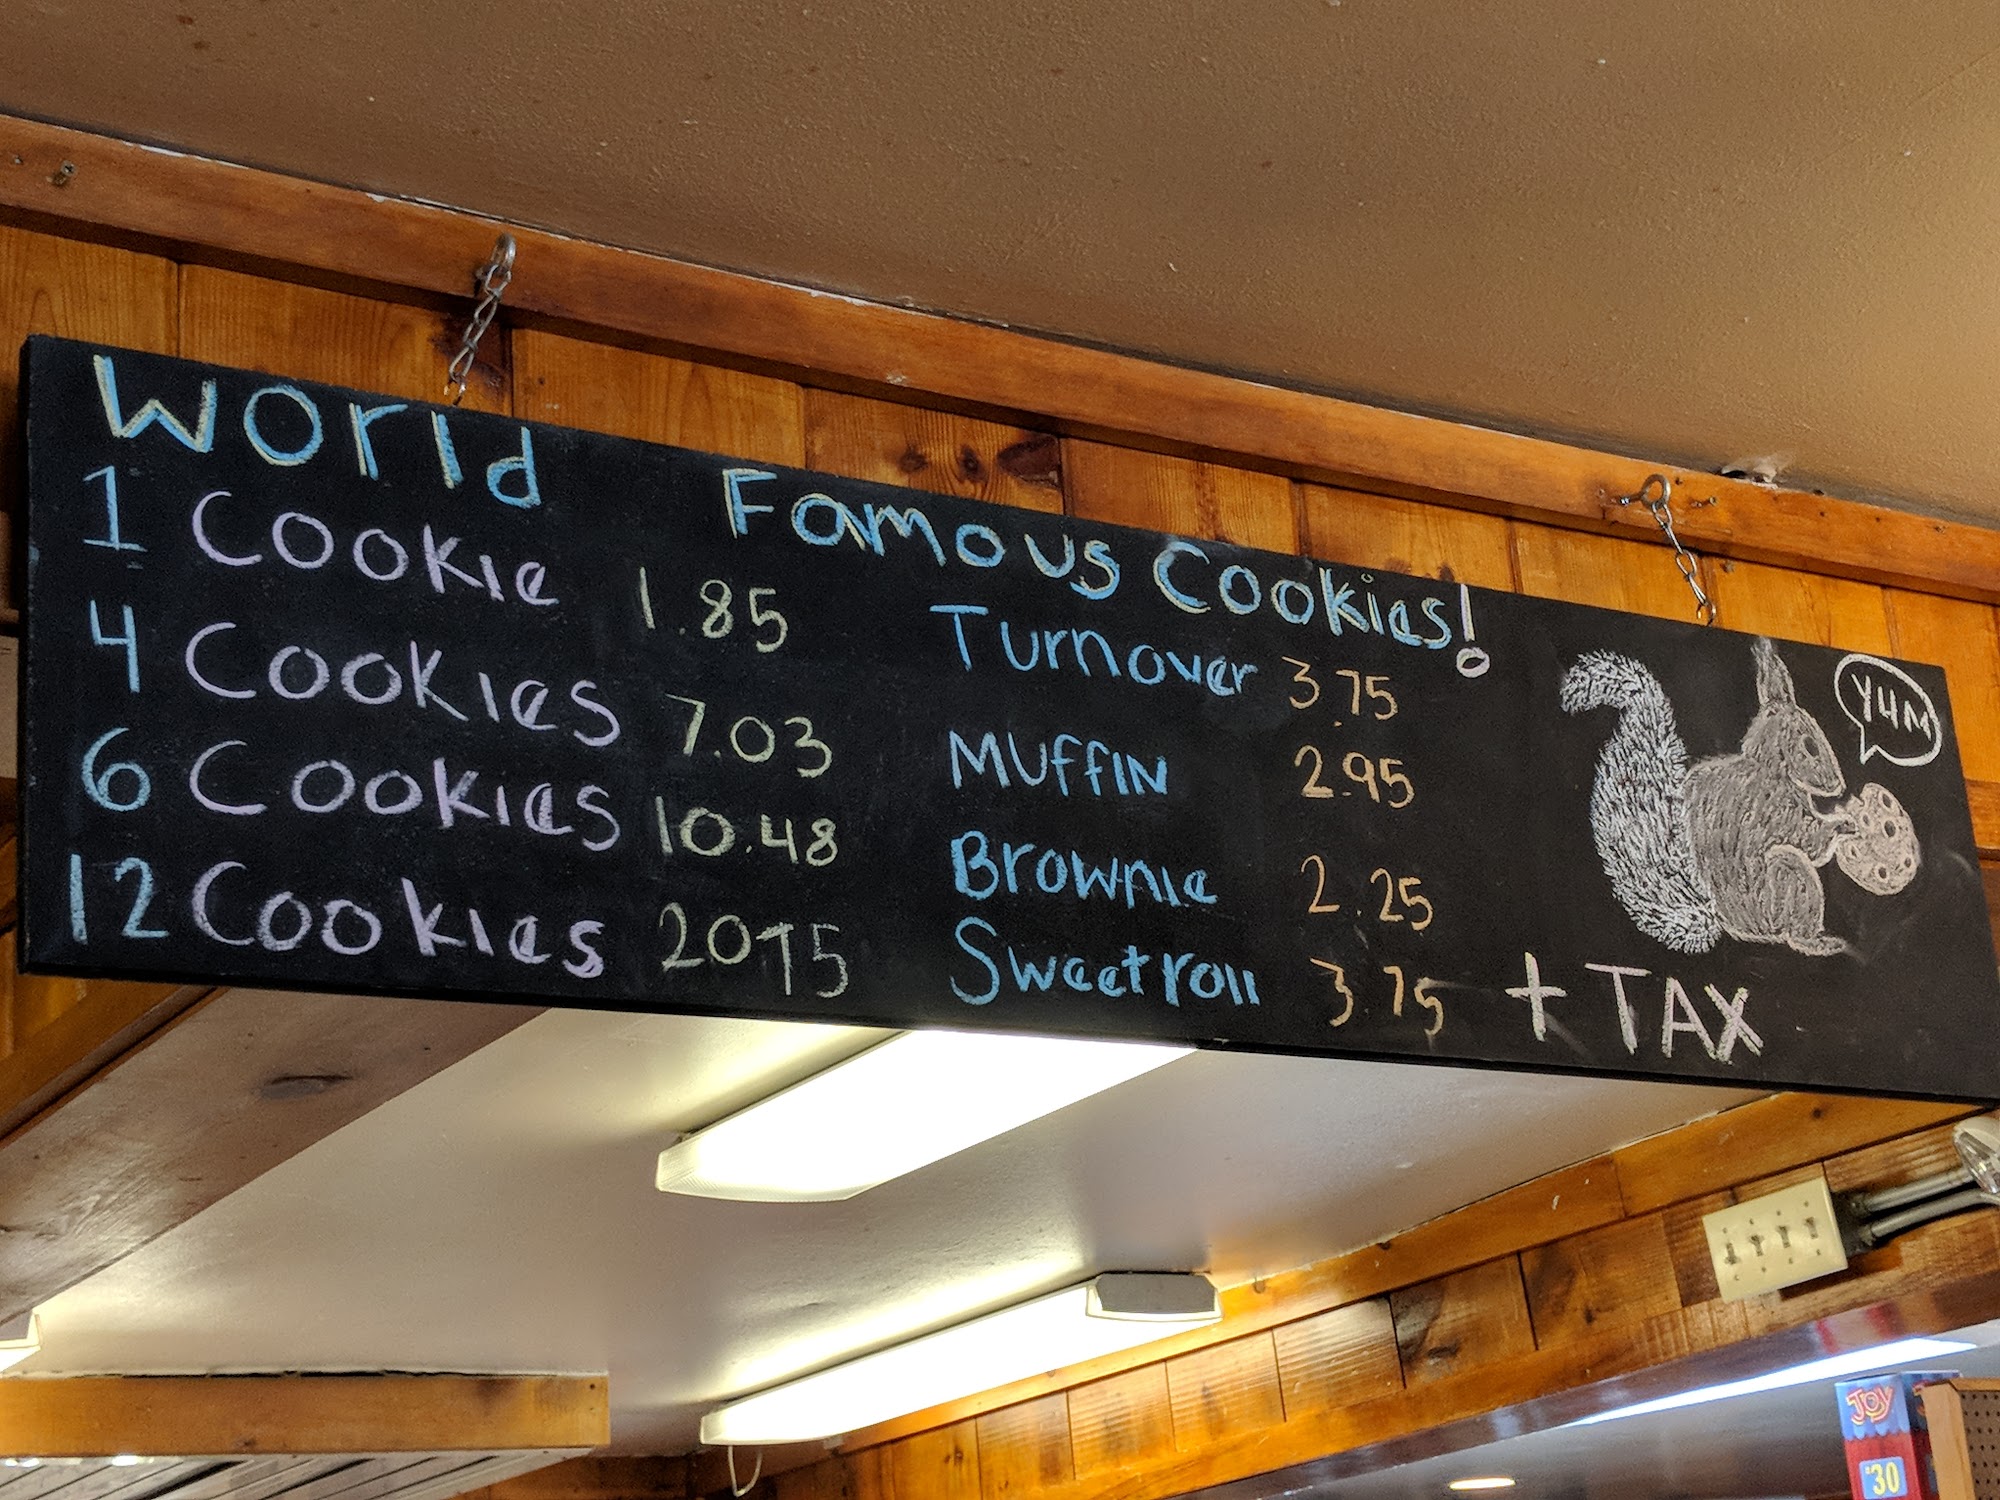 World Famous Cookies!
1 Cookie 1.85
4 Cookies 7.03
6 Cookies 10.48
12 Cookies 2075
Turnover 3.75
Muffin 2.95
Brownie 2.25
Sweet roll 3.75
+ TAX
YUM
JOY
$30